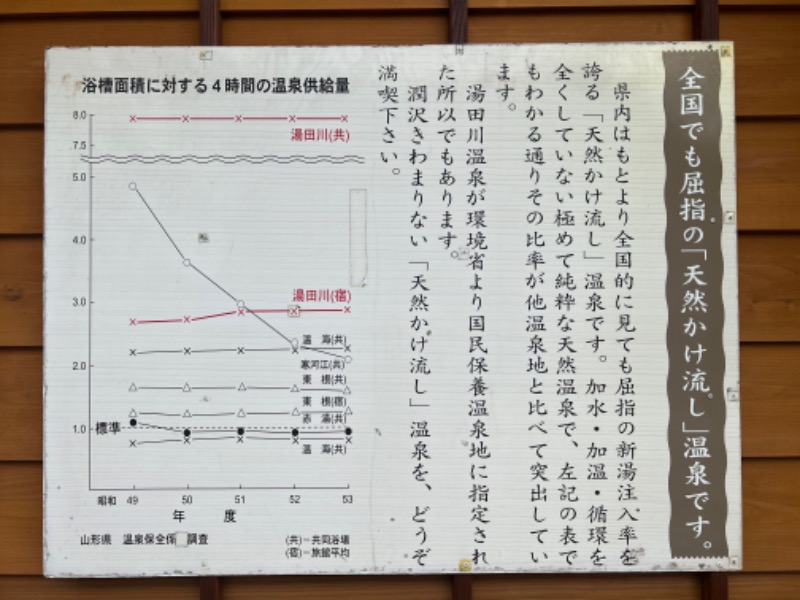 全国でも屈指の「天然かけ流し」温泉です。
県内はもとより全国的に見ても屈指の新湯注入率を
誇る「天然かけ流し」温泉です。加水・加温・循環を
全くしていない極めて純粋な天然温泉で、左記の表で
もわかる通りその比率が他温泉地と比べて突出してい
ます。
湯田川温泉が環境省より国民保養温泉地に指定され
た所以でもあります。
潤沢きわまりない「天然かけ流し」温泉を、どうぞ
満喫下さい。
浴槽面積に対する4時間の温泉供給量
8.0
湯田川(共)
7.5
5.0
4.0
3.0
湯田川(宿)
温 海(共)
寒河江(共)
2.0
東 根(共)
東 根(宿)
赤 湯(共)
標準 1.0
温 海(共)
昭和 49 50 51 52 53
年 度
山形県 温泉保全係 調査
(共)=共同浴場
(宿)=旅館平均